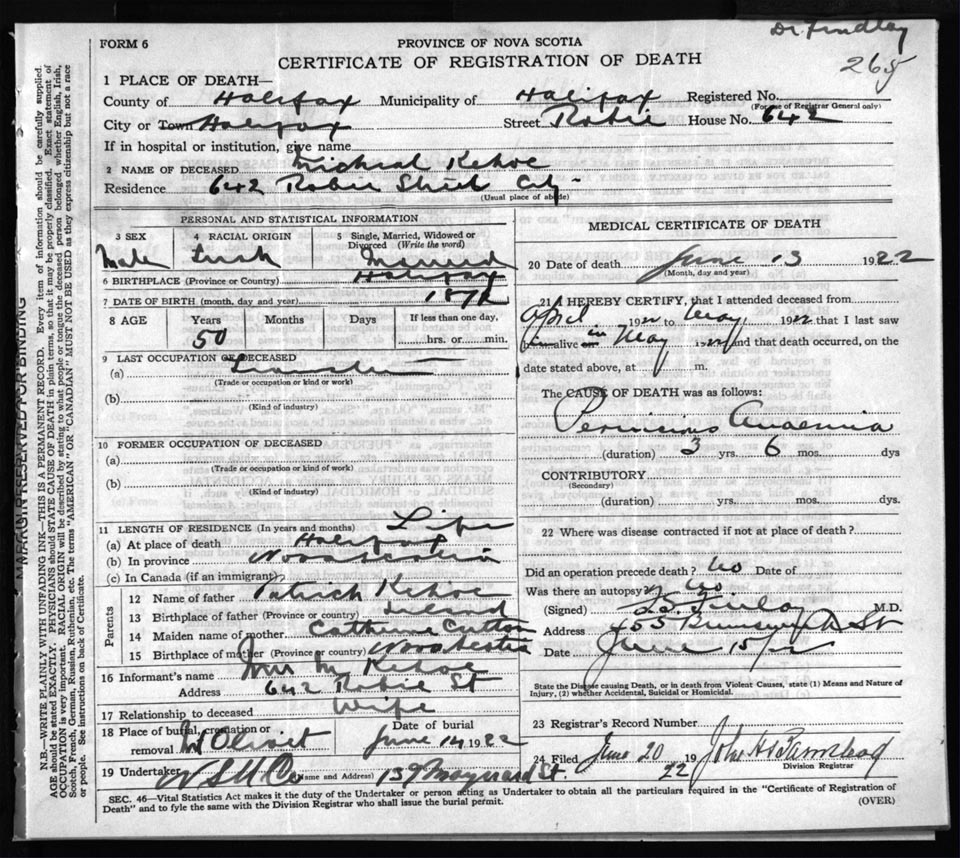 Dr Findlay
265
FORM 6
PROVINCE OF NOVA SCOTIA
CERTIFICATE OF REGISTRATION OF DEATH
1 PLACE OF DEATH—
County of Halifax Municipality of Halifax Registered No.
(For use of Registrar General only)
City or Town Halifax Street Robie House No. 642
If in hospital or institution, give name
2 NAME OF DECEASED Michael Kehoe
Residence 642 Robie Street City
(Usual place of abode)
PERSONAL AND STATISTICAL INFORMATION
3 SEX 4 RACIAL ORIGIN 5 Single, Married, Widowed or Divorced (Write the word)
Male Irish Married
6 BIRTHPLACE (Province or Country) Halifax
7 DATE OF BIRTH (month, day and year) 1872
8 AGE Years Months Days If less than one day,
50 hrs. or min.
9 LAST OCCUPATION OF DECEASED
(a) Teamster
(Trade or occupation or kind or work)
(b)
(Kind of industry)
10 FORMER OCCUPATION OF DECEASED
(a)
(Trade or occupation or kind of work)
(b)
(Kind of industry)
11 LENGTH OF RESIDENCE (In years and months) Life
(a) At place of death Halifax
(b) In province Nova Scotia
(c) In Canada (if an immigrant)
Parents
12 Name of father Patrick Kehoe
13 Birthplace of father (Province or country) Ireland
14 Maiden name of mother Catherine
15 Birthplace of mother (Province or country) Nova Scotia
16 Informant's name Mrs M Kehoe
Address 642 Robie St
17 Relationship to deceased Wife
18 Place of burial, cremation or removal Mt Olivet
Date of burial June 14 1922
19 Undertaker (Name and Address) 139 Maynard St.
MEDICAL CERTIFICATE OF DEATH
20 Date of Death June 13 1922
(Month, day and year)
21 I HEREBY CERTIFY, that I attended deceased from
April 1922 to May 1922 that I last saw
him alive in May 1922 and that death occurred, on the
date stated above, at m.
The CAUSE OF DEATH was as follows:
Pernicious Anaemia
(duration) 3 yrs. 6 mos. dys
CONTRIBUTORY
(Secondary)
(duration) yrs. mos. dys.
22 Where was disease contracted if not at place of death?
Did an operation precede death? No Date of
Was there an autopsy? No
(Signed) Finlay M.D.
Address St
Date June 15/22
State the Disease causing Death, or in death from Violent Causes, state (1) Means and Nature of
Injury, (2) whether Accidental, Suicidal or Homicidal.
23 Registrar's Record Number
24 Filed June 20 1922 John
Division Registrar
SEC. 46—Vital Statistics Act makes it the duty of the Undertaker or person acting as Undertaker to obtain all the particulars required in the "Certificate of Registration of
Death" and to fyle the same with the Division Registrar who shall issue the burial permit.
(OVER)
MARGIN RESERVED FOR BINDING
N.B.—WRITE PLAINLY WITH UNFADING INK—THIS IS A PERMANENT RECORD. Every item of information should be carefully supplied.
AGE should be stated EXACTLY. PHYSICIANS should STATE CAUSE OF DEATH in plain terms, so that it may be properly classified. Exact statement of
OCCUPATION is very important. RACIAL ORIGIN will be described by stating to what people or tongue the deceased person belonged whether English, Irish,
Scotch, French, German, Russian, Ruthenian, etc. The terms "AMERICAN" OR "CANADIAN" MUST NOT BE USED as they express citizenship but not a race
or people. See instructions on back of Certificate.